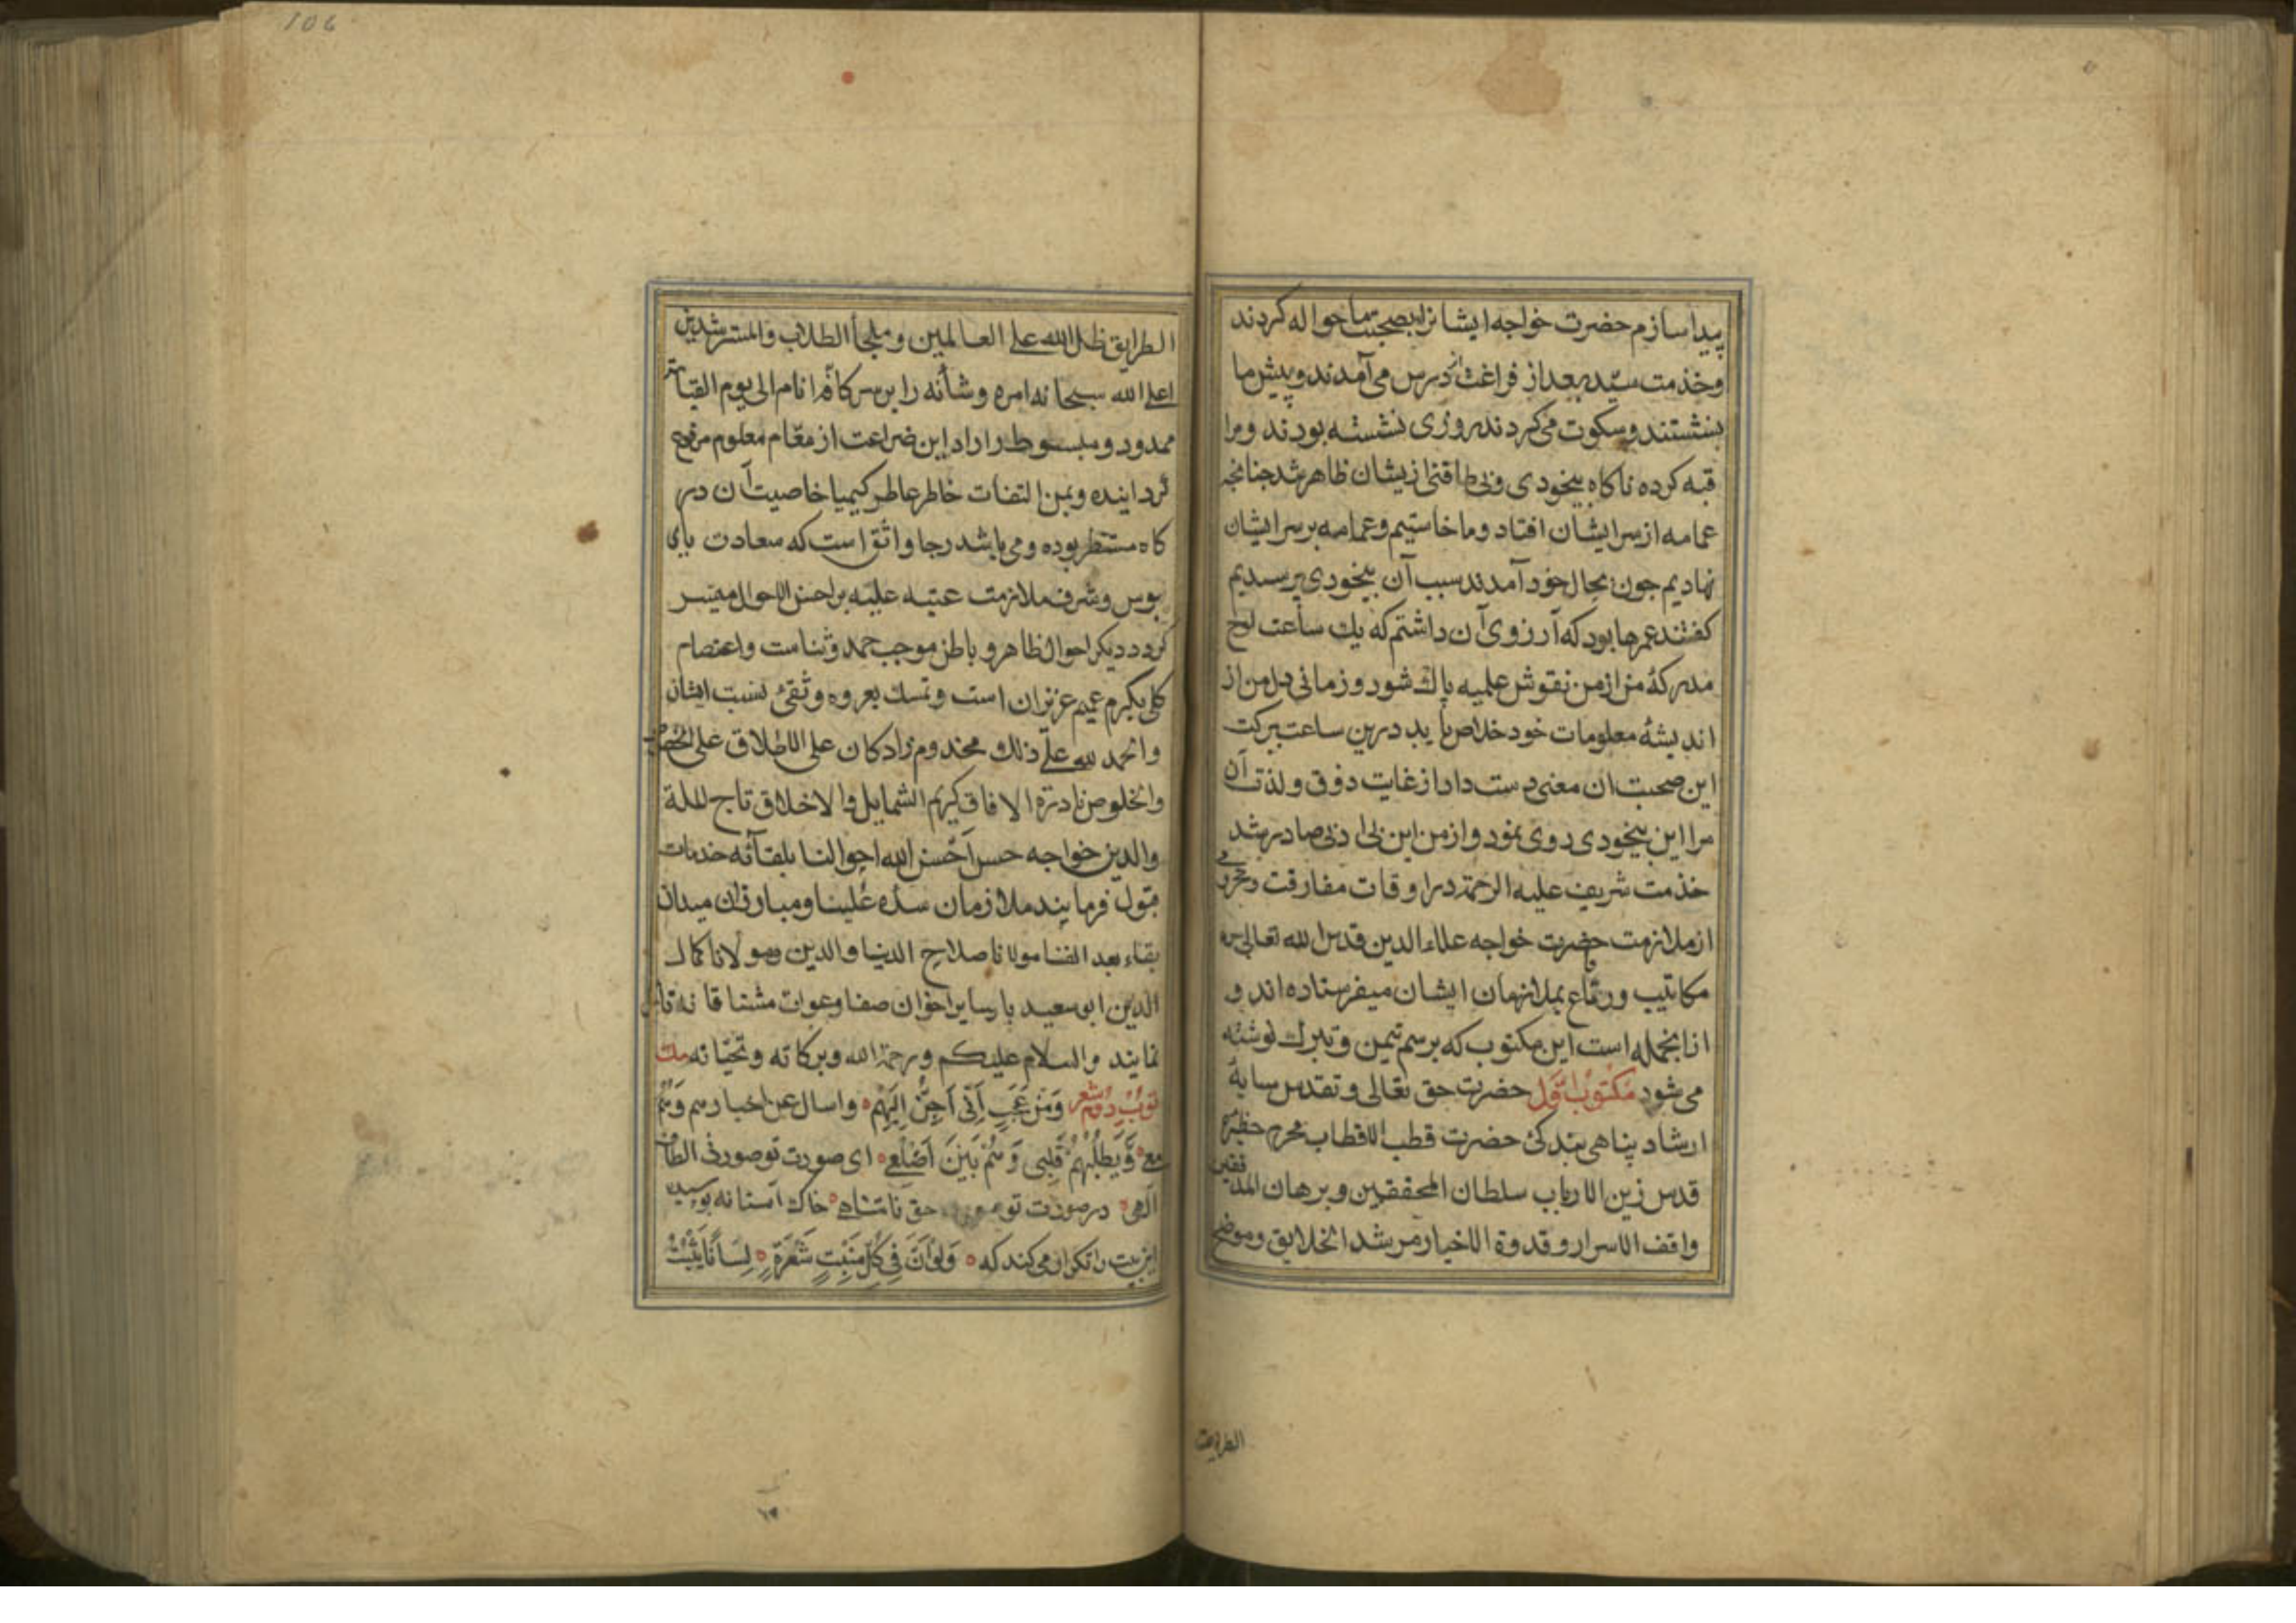 پیدا سازم حضرت خواجه ایشانرا بصحبت ما حواله کردند
وخذمت سید بعد از فراغت از درس می آمدند و پیش ما
بنشستند و سکوت می کردند روزی نشسته بودند و مرا
قبه کرده ناکاه بیخودی و بی طاقتی ازیشان ظاهر شد جنانجه
عمامه از سر ایشان افتاد و ما خاستیم و عمامه بر سر ایشان
نهادیم جون بحال خود آمدند سبب آن بیخودی پرسیدیم
کفتند عمرها بود که آرزوی آن داشتم که یك ساعت لوح
مدرکۀ من ازمن نقوش علمیه پاك شود و زمانی دل من از
اندیشۀ معلومات خود خلاص یابد درین ساعت ببرکت
این صحبت ان معنی دست داد از غایت ذوق و لذت آن
مرا این بیخودی روی نمود و از من این بی ادبی صادر شد
خذمت شریف علیه الرحمة در اوقات مفارقت و محرومی
از ملازمت حضرت خواجه علاء الدین قدس الله تعالی سره
مکاتیب و رقاع بملازمان ایشان میفرستاده اند و
از انجمله است این مکتوب که برسم تیمن و تبرك نوشته
می شود مکتوب اول حضرت حق تعالی و تقدس سایۀ
ارشاد پناهی بندکئ حضرت قطب الاقطاب محرم حظیرۀ
قدس زین الارباب سلطان المحققین و برهان المدققین
واقف الاسرار و قدوة الاخیار مرشد الخلایق وموضح
الطریق
106
الطرایق ظل الله علی العالمین و ملجأ الطلاب والمسترشدین
اعلی الله سبحانه امره و شأنه را بر سر کافۀ انام الی یوم القیامة
ممدود و مبسوط داراد این ضراعت از مقام معلوم مرفوع
کردانیده و بمن التفات خاطر عاطر کیمیا خاصیت آن در
کاه مستظهر بوده و می باشد رجا واثق است که سعادت پای
بوس و شرف ملازمت عتبه علیه بر احسن الاحوال میسر
کردد دیکر احوال ظاهر و باطن موجب حمد و ثنا مت و اعتصام
کلی بکرم عمیم عزیزان است و تمسك بعروه وثقئ نسبت ایشان
والحمد لله علی ذلك مخدوم زادکان علی الاطلاق علی الخصوص
والخلوص نادرة الافاق کریم الشمایل والاخلاق تاج الملة
والدین خواجه حسن احسن الله احوالنا بلقائه خدمات
قبول فرمایند ملازمان سده علینا و مبارزان میدان
بقاء بعد الفنا مولانا صلاح الدنیا والدین ومولانا کمال
الدین ابو سعید با سایر اخوان صفا وعوات مشتاقانه تامل
نمایند والسلام علیکم ورحمة الله وبرکاته وتحیاته مك
توب دوم شعر وَمِنْ عَجَبٍ اَنّی اَحِنُّ اِلَیْهِمْ واسال عن اخبارهم وَهُمْ
معی وَیَطْلُبُهُمْ قَلْبی وَهُمْ بَیْنَ اَضْلُعی ای صورت تو صورت الطاف
الهی در صورت تو حق نامتناهی خاك آستانه بوسیده
این بیت را تکرار می کند که وَلَوْ اَنَّ فی کُلِّ مَنْبِتِ شَعْرَةٍ لِسَانًا یَثْبُتُ